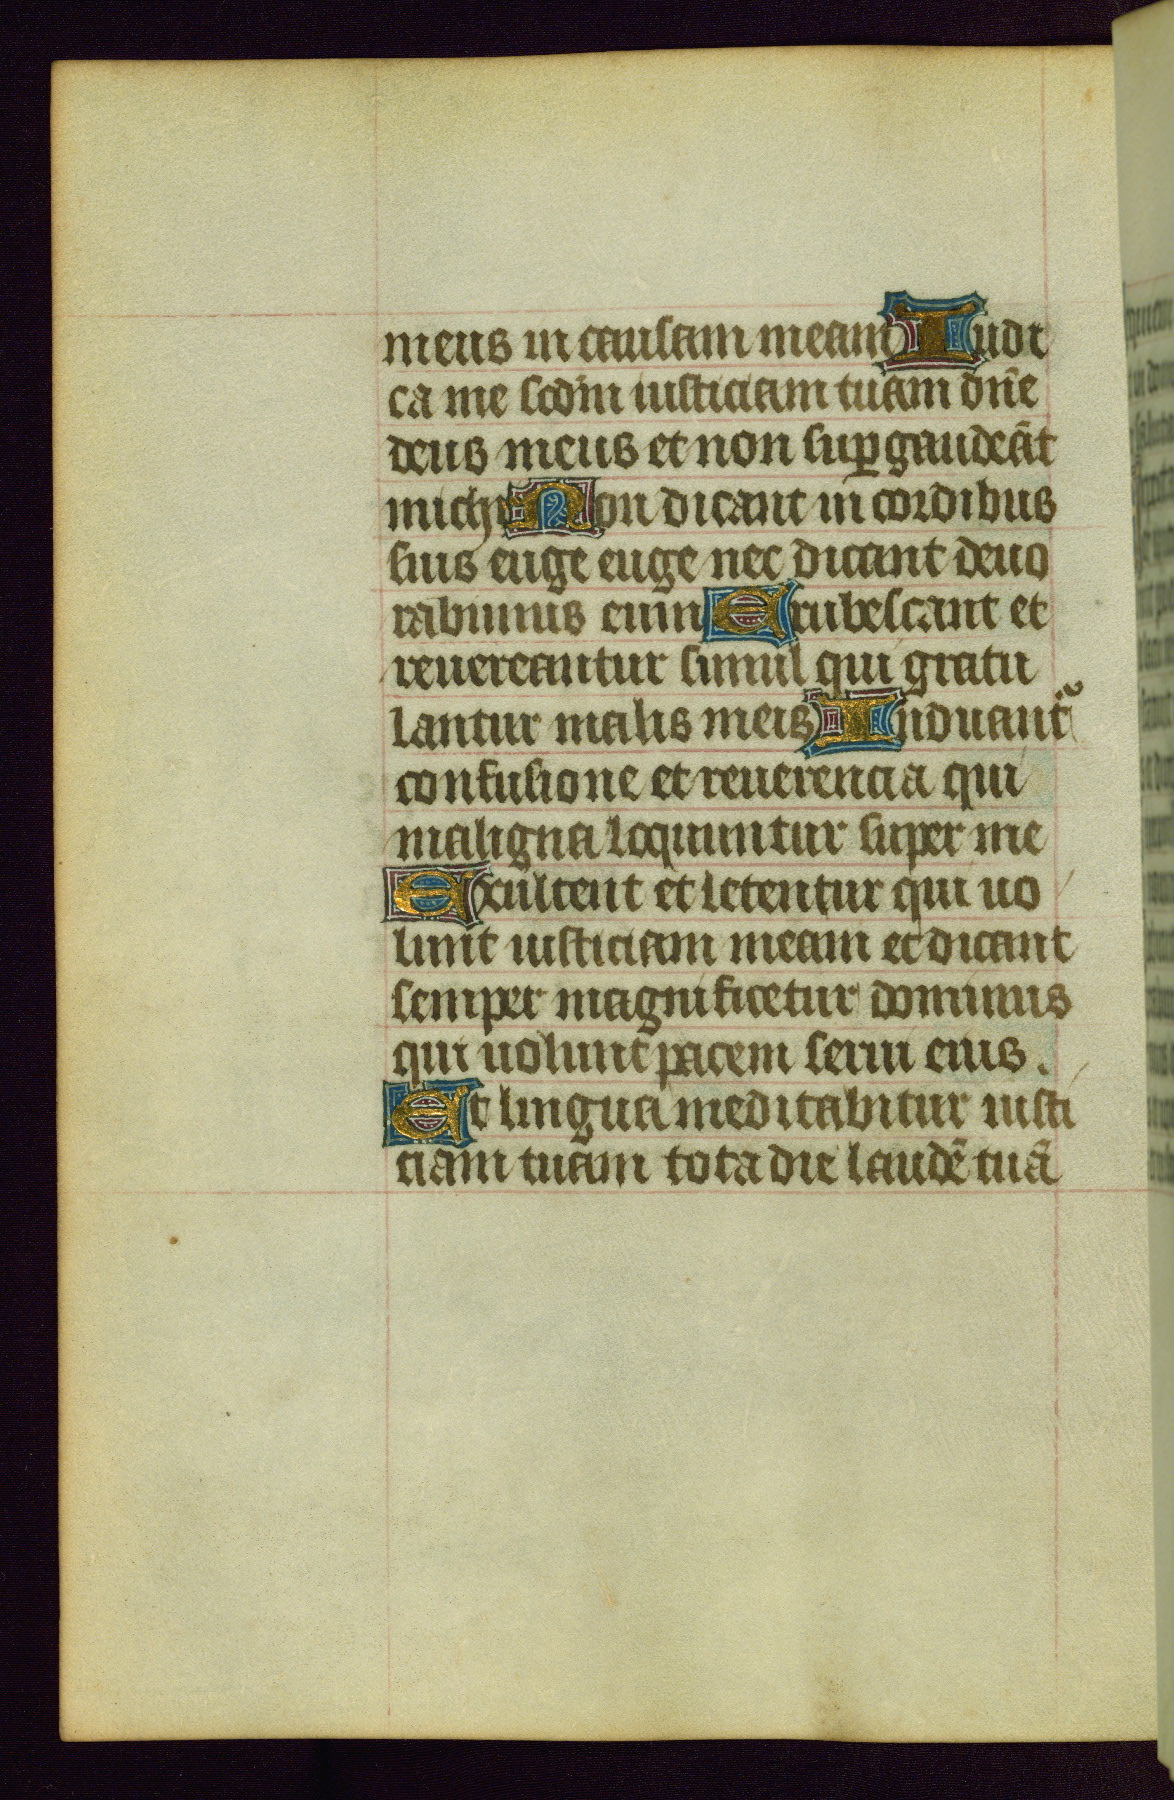 meus in causam meam Iudi
ca me scdm̄ iusticiam tuam dn̄e
deus meus et non suꝑgaudeāt
michi Non dicant in cordibus
suis euge euge nec dicant deuo
rabimus eum Erubescant et
reuereantur simul qui gratu
lantur malis meis Induantͬ
confusione et reuerencia qui
maligna loquuntur super me
Exultent et letentur qui uo
lunt iusticiam meam et dicant
semper magnificetur dominus
qui uolunt pacem serui eius.
Et lingua meditabitur iusti
ciam tuam tota die laudē tuā